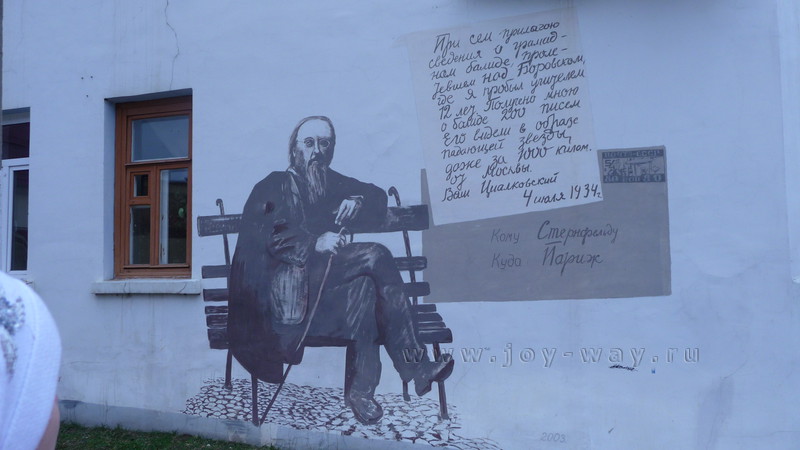 При сем прилагаю
сведения о громад-
ном балиде, проле-
тевшем над Боровском,
где я пробыл учителем
12 лет. Получено мною
о балиде 200 писем
Его видели в образе
падающей звезды,
даже за 1000 килом.
от Москвы.
Ваш Циалковский
4 июля 1934г.
Кому Стернфельду
Куда Париж
www.joy-way.ru
2003